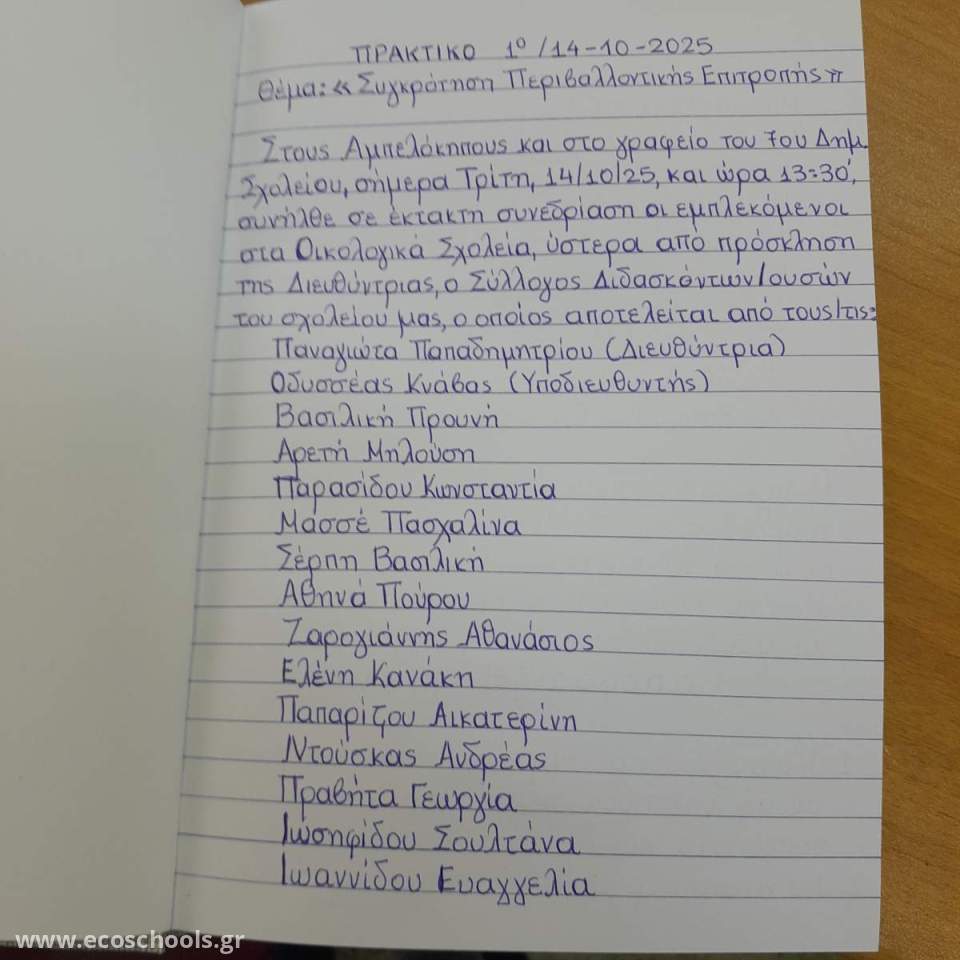 ΠΡΑΚΤΙΚΟ 1º/14-10-2025
Θέμα: «Συγκρότηση Περιβαλλοντικής Επιτροπής»
Στους Αμπελόκηπους και στο γραφείο του 7ου Δημ.
Σχολείου, σήμερα Τρίτη, 14/10/25, και ώρα 13:30΄,
συνήλθε σε έκτακτη συνεδρίαση οι εμπλεκόμενοι
στα Οικολογικά Σχολεία, ύστερα από πρόσκληση
της Διευθύντριας, ο Σύλλογος Διδασκόντων/ουσών
του σχολείου μας, ο οποίος αποτελείται από τους/τις:
Παναγιώτα Παπαδημητρίου (Διευθύντρια)
Οδυσσέας Κνάβας (Υποδιευθυντής)
Βασιλική Προυνή
Αρετή Μηλούση
Παρασίδου Κωνσταντία
Μάσσέ Πασχαλίνα
Σέρπη Βασιλική
Αθηνά Πούρου
Ζαρογιάννης Αθανάσιος
Ελένη Κανάκη
Παπαρίζου Αικατερίνη
Ντούσκας Ανδρέας
Πραβήτα Γεωργία
Ιωσηφίδου Σουλτάνα
Ιωαννίδου Ευαγγελία
www.ecoschools.gr